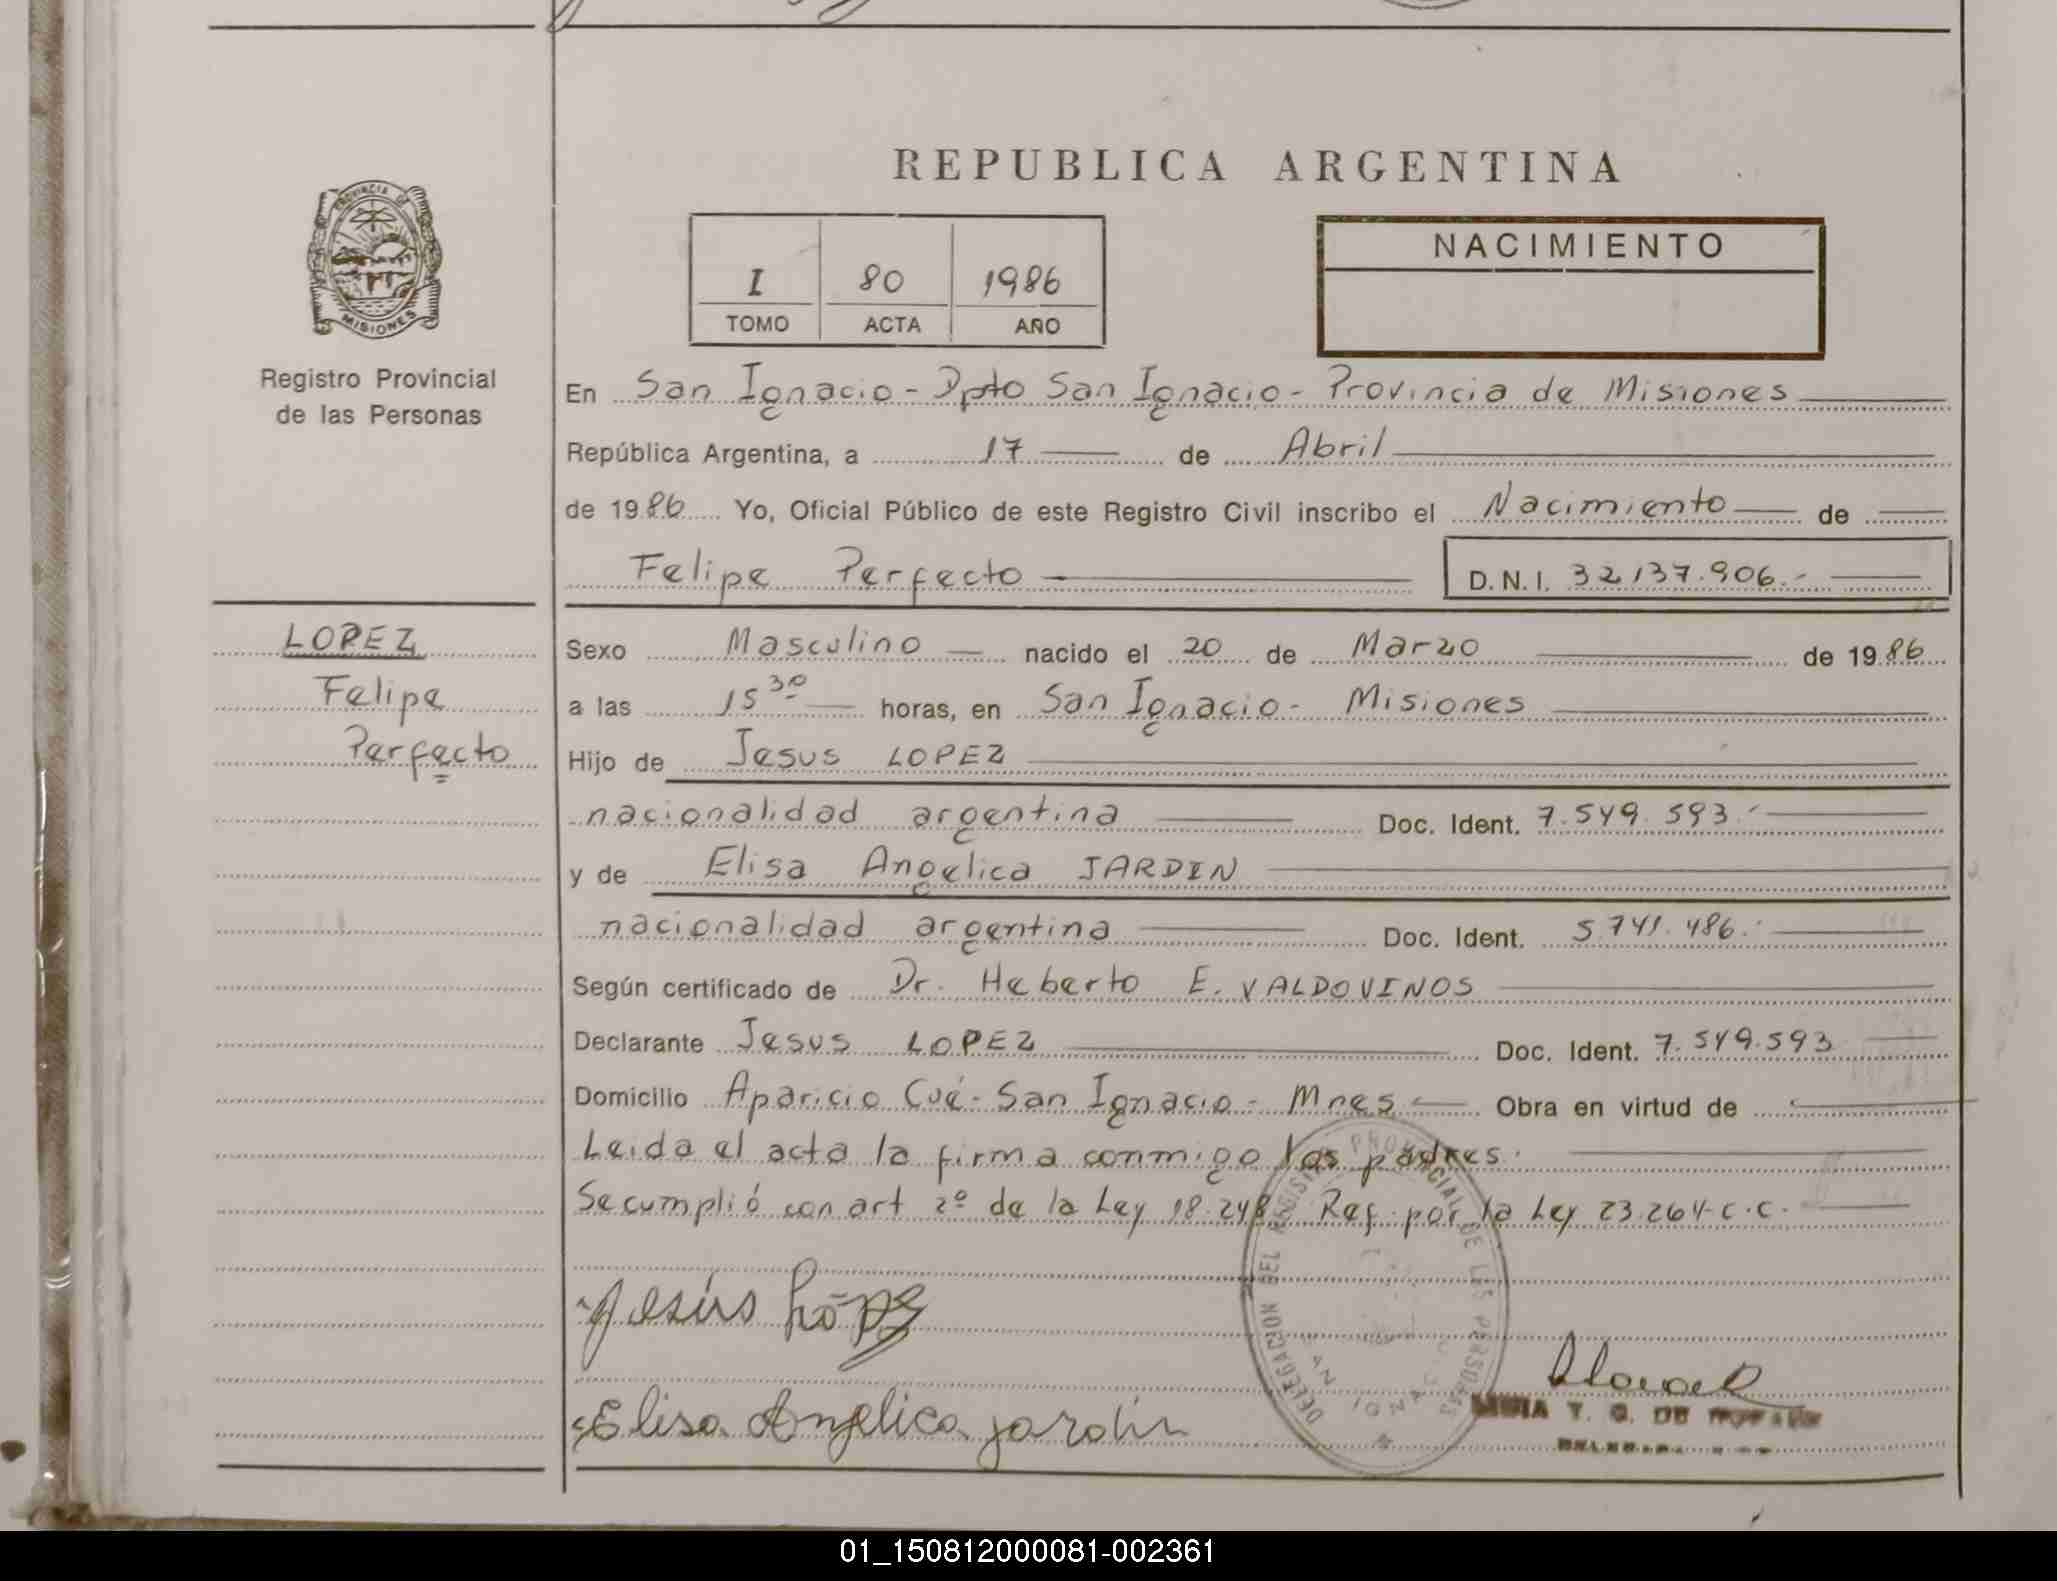 REPUBLICA ARGENTINA
PROVINCIA DE
MISIONES
Registro Provincial
de las Personas
I 80 1986
TOMO ACTA AÑO
NACIMIENTO
En San Ignacio - Dpto San Ignacio - Provincia de Misiones
República Argentina, a 17 de Abril
de 1986 Yo, Oficial Público de este Registro Civil inscribo el Nacimiento de
Felipe Perfecto D.N.I. 32.137.906.-
LOPEZ
Felipe
Perfecto
Sexo Masculino nacido el 20 de Marzo de 1986
a las 15 30 horas, en San Ignacio - Misiones
Hijo de Jesus LOPEZ
nacionalidad argentina Doc. Ident. 7.549.593.-
y de Elisa Angelica JARDIN
nacionalidad argentina Doc. Ident. 5.741.486.-
Según certificado de Dr. Heberto E. VALDOVINOS
Declarante Jesus LOPEZ Doc. Ident. 7.549.593
Domicilio Aparicio Cué - San Ignacio - Mnes Obra en virtud de
Leida el acta la firma conmigo los padres.
Se cumplió con art 2º de la Ley 18.248 Ref. por la Ley 23.264 C.C.
Jesús López
Elisa Angelica jardin
DELEGACION DEL REGISTRO PROVINCIAL DE LAS PERSONAS
SAN IGNACIO
T. G. DE
01_150812000081-002361